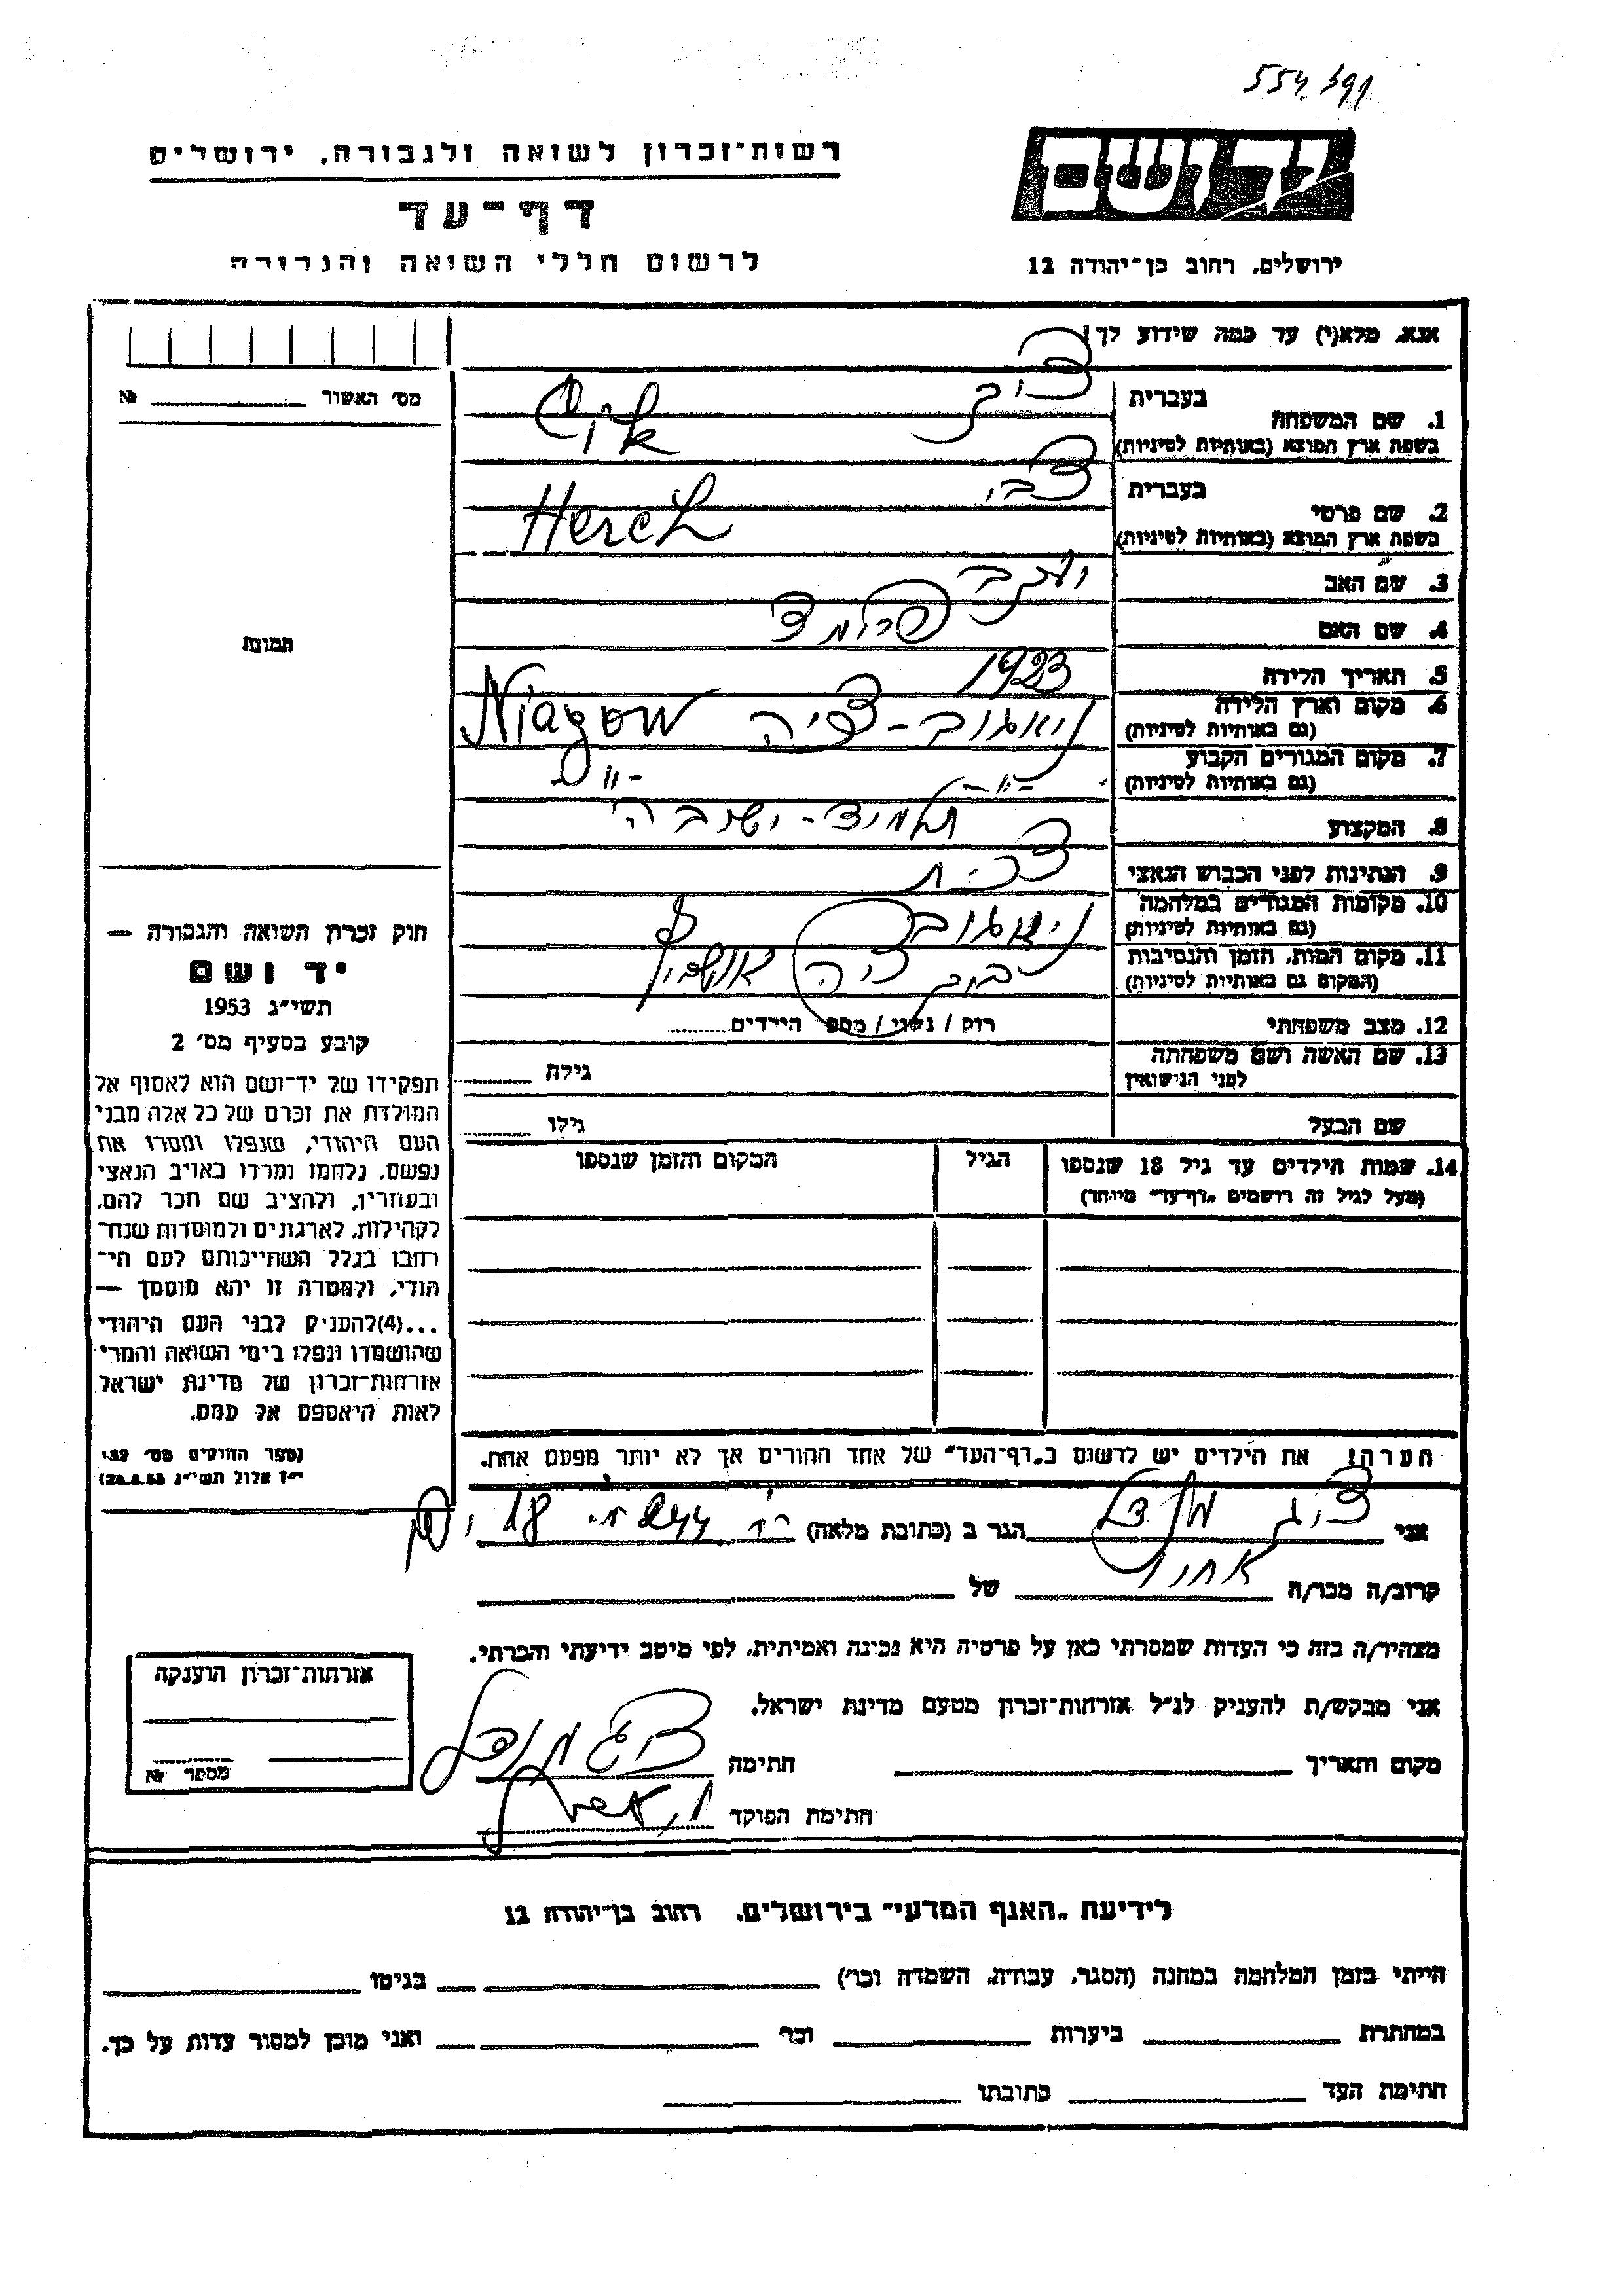 רשות־זכרון לשואה ולגבורה, ירושלים
דף־עד
לרשום חללי השואה והגבורה
יד ושם
ירושלים, רחוב בן־יהודה 12
אנא, מלא(י) עד כמה שידוע לך!
מס׳ האשור № 
1. שם המשפחה
בעברית
בשפת ארץ המוצא (באותיות לטיניות)
2. שם פרטי
בעברית צבי
בשפת ארץ המוצא (באותיות לטיניות) Hersh
3. שם האב יעקב
4. שם האם פרומד
5. תאריך הלידה 1923
6. מקום וארץ הלידה
(גם באותיות לטיניות) Niagow
7. מקום המגורים הקבוע
(גם באותיות לטיניות) -"- -"-
8. המקצוע תלמיד-ישיבה
9. הנתינות לפני הכבוש הנאצי
10. מקומות המגורים במלחמה
(גם באותיות לטיניות)
11. מקום המות, הזמן והנסיבות
(המקום גם באותיות לטיניות)
12. מצב משפחתי רוק / נשוי / מספ׳ הילדים
13. שם האשה ושם משפחתה
לפני הנישואין גילה
שם הבעל גילו
14. שמות הילדים עד גיל 18 שנספו
(מעל לגיל זה רושמים „דף־עד״ מיוחד)
הגיל
המקום והזמן שנספו
תמונה
חוק זכרון השואה והגבורה —
יד ושם
תשי״ג 1953
קובע בסעיף מס׳ 2
תפקידו של יד־ושם הוא לאסוף אל
המולדת את זכרם של כל אלה מבני
העם היהודי, שנפלו ומסרו את
נפשם, נלחמו ומרדו באויב הנאצי
ובעוזריו, ולהציב שם וזכר להם,
לקהילות, לארגונים ולמוסדות שנח־
רבו בגלל השתייכותם לעם הי־
הודי, ולמטרה זו יהא מוסמך —
...(4)להעניק לבני העם היהודי
שהושמדו ונפלו בימי השואה והמרי
אזרחות־זכרון של מדינת ישראל
לאות היאספם אל עמם.
(ספר החוקים מס׳ 132,
י״ז אלול תשי״ג 28.8.53)
הערה! את הילדים יש לרשום ב„דף־העד״ של אחד ההורים אך לא יותר מפעם אחת.
אני הגר ב (כתובת מלאה) 18
קרוב/ה מכר/ה של
מצהיר/ה בזה כי העדות שמסרתי כאן על פרטיה היא נכונה ואמיתית, לפי מיטב ידיעתי והכרתי.
אני מבקש/ת להעניק לנ״ל אזרחות־זכרון מטעם מדינת ישראל.
מקום ותאריך חתימה
חתימת הפוקד
אזרחות־זכרון הוענקה
מספר №
לידיעת „האגף המדעי״ בירושלים, רחוב בן־יהודה 12
הייתי בזמן המלחמה במחנה (הסגר, עבודה, השמדה וכו׳) בגיטו
במחתרת ביערות וכו׳ ואני מוכן למסור עדות על כך.
חתימת העד כתובתו